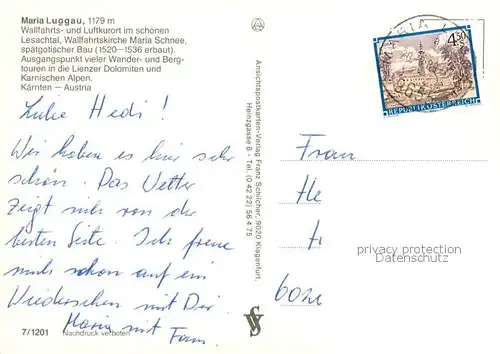 Maria Luggau, 1179 m
Wallfahrts- und Luftkurort im schönen
Lesachtal, Wallfahrtskirche Maria Schnee,
spätgotischer Bau (1520—1536 erbaut).
Ausgangspunkt vieler Wander- und Berg-
touren in die Lienzer Dolomiten und
Karnischen Alpen.
Kärnten — Austria
Liebe Hedi!
Wir haben es hier sehr
schön. Das Wetter
zeigt sich von der
besten Seite. Ich freue
mich schon auf ein
Wiedersehen mit Dir
Maria mit Fam
7/1201 Nachdruck verboten
Ansichtspostkarten-Verlag Franz Schlicher, 9020 Klagenfurt,
Heinzgasse 8 - Tel. (0 42 22) 56 4 75
4.50
REPUBLIK ÖSTERREICH
Frau
He
privacy protection
Oldthing.de